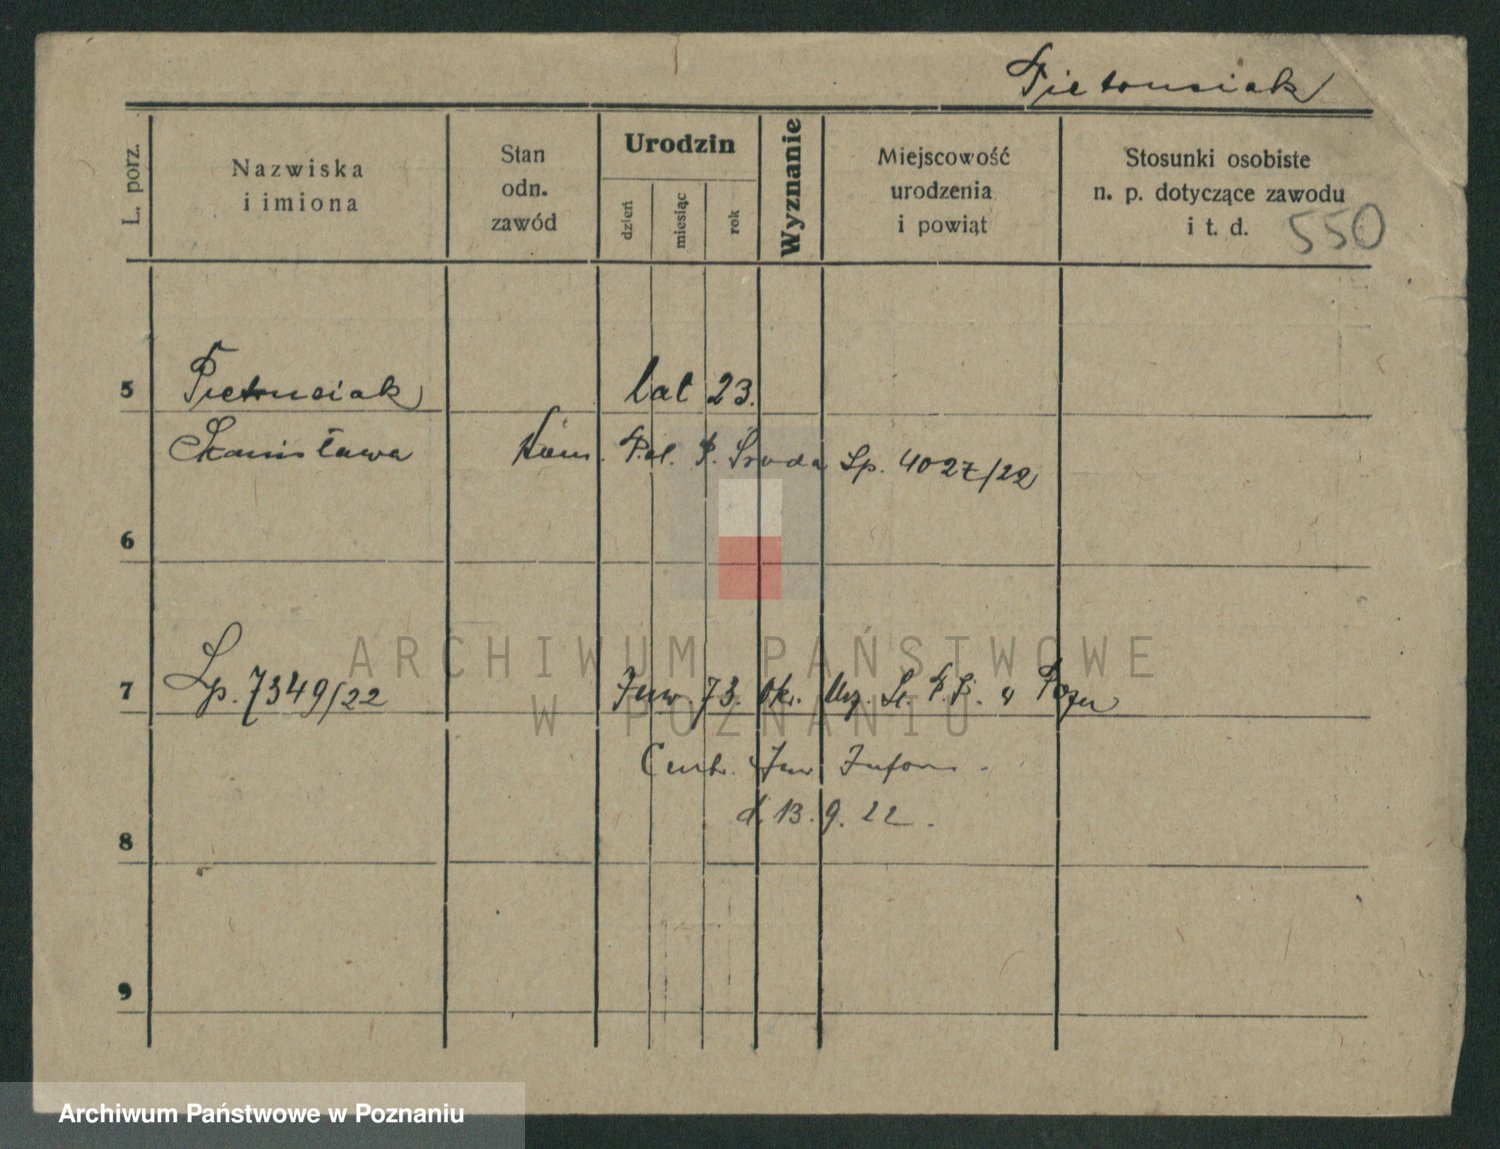 Pietrusiak
L. porz.
Nazwiska
i imiona
Stan
odn.
zawód
Urodzin
dzień
miesiąc
rok
Wyznanie
Miejscowość
urodzenia
i powiąt
Stosunki osobiste
n. p. dotyczące zawodu
i t. d.
550
5
Pietrusiak
lat 23.
Stanisława
Kom. Pol. P. Środa Lp. 4027/22
6
ARCHIWUM PAŃSTWOWE
W POZNANIU
7
Lp. 7349/22
Inw. 73. Okr. Urz. Śl. P.P. Pozn
Centr. Inw Inform.
d. 13. 9. 22.
8
9
Archiwum Państwowe w Poznaniu